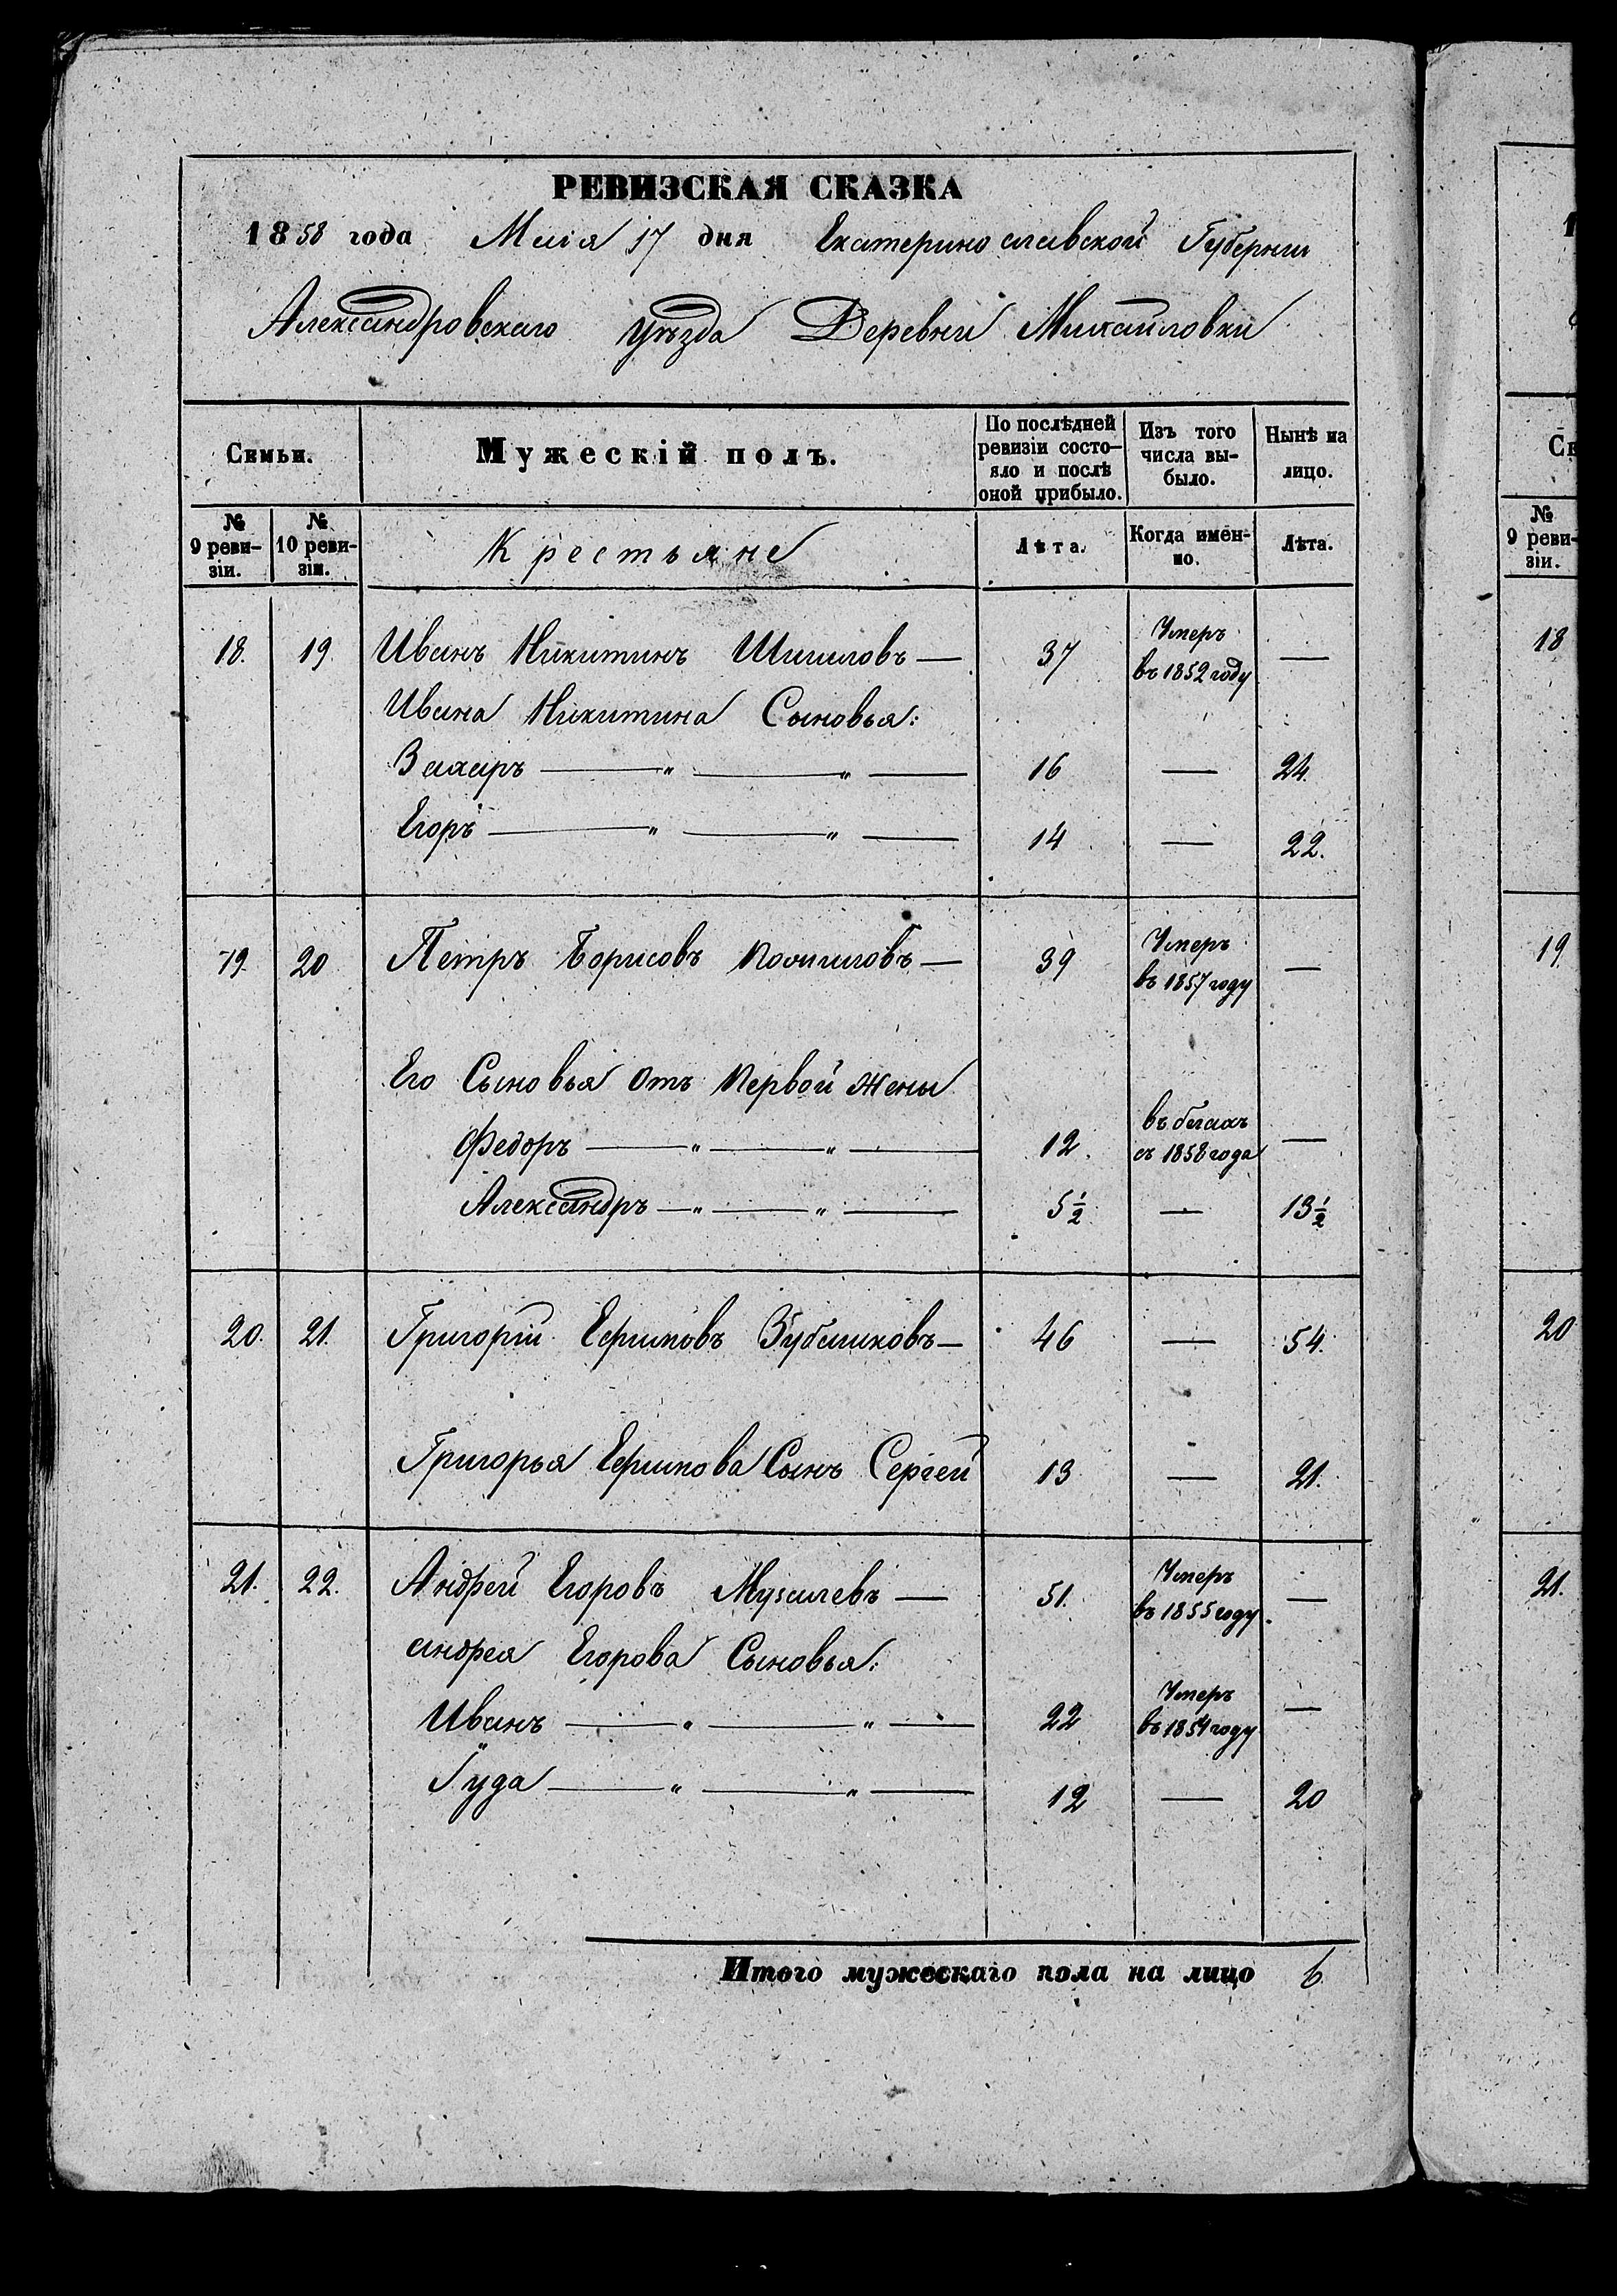 РЕВИЗСКАЯ СКАЗКА
1858 года Маія 17 дня Екатеринославской Губерніи
Александровскаго уѣзда Деревни Михайловки
Семьи.
Мужескій полъ.
По послѣдней ревизіи состо-
яло и послѣ
оной прибыло.
Изъ того
числа вы-
было.
Нынѣ на
лицо.
№
9 реви-
зіи.
№
10 реви-
зіи.
Крестьяне
Лѣта.
Когда имен-
но.
Лѣта.
18. 19. Иванъ Никитинъ — 37 Умеръ въ 1852 году —
Ивана Никитина Сыновья:
Захаръ — " — " — 16 — 24.
Егоръ — " — " — 14 — 22.
19. 20 Петръ Борисовъ — 39 Умеръ въ 1857 году —
Его Сыновья отъ первой жены
Федоръ — " — " — 12. въ бегахъ съ 1858 года —
Александръ — " — " — 5½ — 13½
20. 21. Григорій Ефимовъ — 46 — 54.
Григорья Ефимова Сынъ Сергей 13 — 21.
21. 22. Андрей Егоровъ — 51. Умеръ въ 1855 году. —
андрея Егорова Сыновья:
Иванъ — " — " — 22 Умеръ въ 1854 году —
Іуда — " — " — 12 — 20
Итого мужескаго пола на лицо 6
№
9 реви-
зіи.
18
19
20
21.